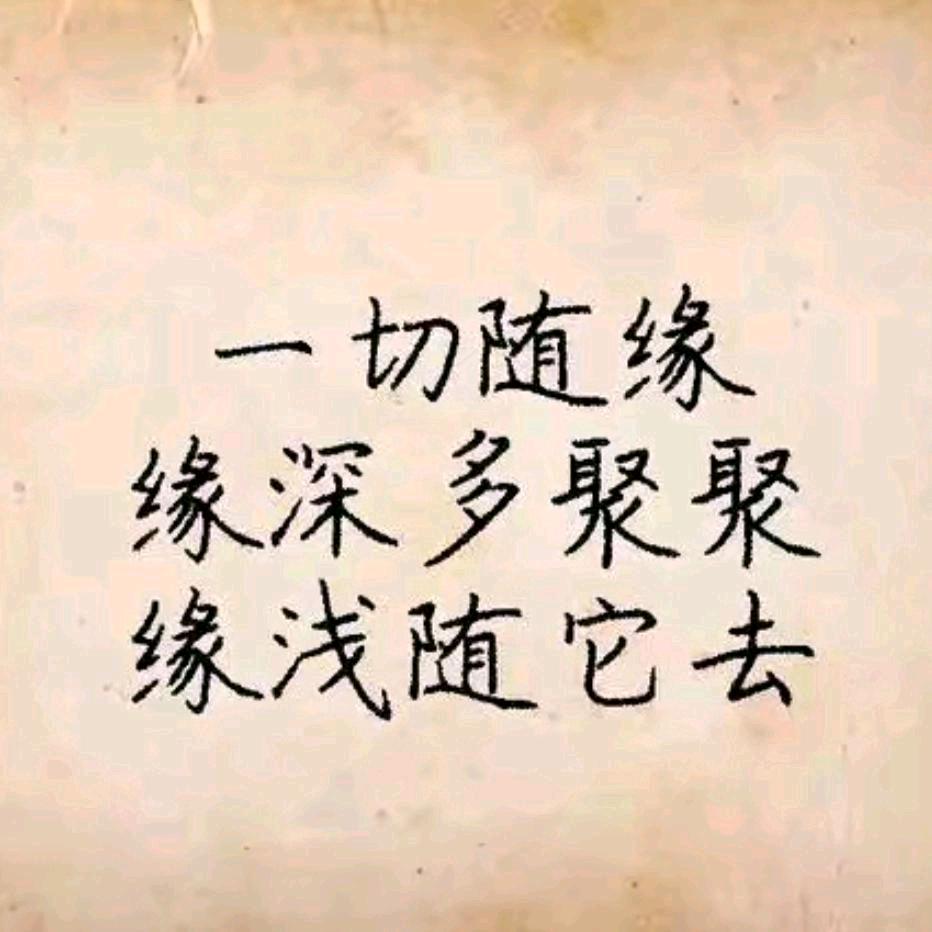 一切随缘
缘深多聚聚
缘浅随它去